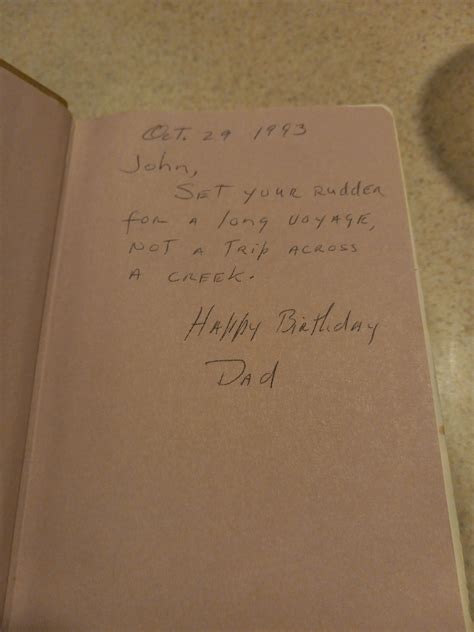 Oct. 29 1993
John,
Set your rudder
for a long voyage,
not a trip across
a creek.
Happy Birthday
Dad